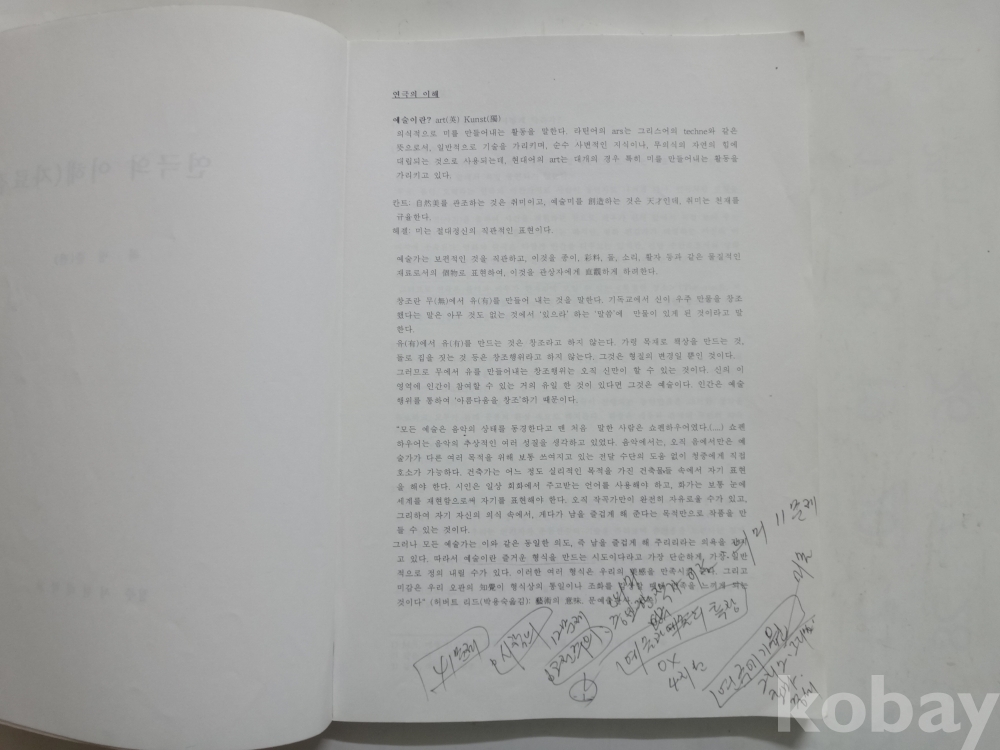 연극의 이해
예술이란? art(英) Kunst(獨)
의식적으로 미를 만들어내는 활동을 말한다. 라틴어의 ars는 그리스어의 techne와 같은
뜻으로서, 일반적으로 기술을 가리키며, 순수 사변적인 지식이나, 무의식의 자연의 힘에
대립되는 것으로 사용되는데, 현대어의 art는 대개의 경우 특히 미를 만들어내는 활동을
가리키고 있다.
칸트: 自然美를 관조하는 것은 취미이고, 예술미를 創造하는 것은 天才인데, 취미는 천재를
규율한다.
헤겔: 미는 절대정신의 직관적인 표현이다.
예술가는 보편적인 것을 직관하고, 이것을 종이, 彩料, 돌, 소리, 활자 등과 같은 물질적인
재료로서의 個物로 표현하여, 이것을 관상자에게 直觀하게 하려한다.
창조란 무(無)에서 유(有)를 만들어 내는 것을 말한다. 기독교에서 신이 우주 만물을 창조
했다는 말은 아무 것도 없는 것에서 '있으라' 하는 '말씀'에 만물이 있게 된 것이라고 말
한다.
유(有)에서 유(有)를 만드는 것은 창조라고 하지 않는다. 가령 목재로 책상을 만드는 것,
돌로 집을 짓는 것 등은 창조행위라고 하지 않는다. 그것은 형질의 변경일 뿐인 것이다.
그러므로 무에서 유를 만들어내는 창조행위는 오직 신만이 할 수 있는 것이다. 신의 이
영역에 인간이 참여할 수 있는 거의 유일 한 것이 있다면 그것은 예술이다. 인간은 예술
행위를 통하여 '아름다움을 창조'하기 때문이다.
"모든 예술은 음악의 상태를 동경한다고 맨 처음 말한 사람은 쇼펜하우어였다.(...) 쇼펜
하우어는 음악의 추상적인 여러 성질을 생각하고 있었다. 음악에서는, 오직 음에서만은 예
술가가 다른 여러 목적을 위해 보통 쓰여지고 있는 전달 수단의 도움 없이 청중에게 직접
호소가 가능하다. 건축가는 어느 정도 실리적인 목적을 가진 건축물들 속에서 자기 표현
을 해야 한다. 시인은 일상 회화에서 주고받는 언어를 사용해야 하고, 화가는 보통 눈에
세계를 재현함으로써 자기를 표현해야 한다. 오직 작곡가만이 완전히 자유로울 수가 있고,
그리하여 자기 자신의 의식 속에서, 게다가 남을 즐겁게 해 준다는 목적만으로 작품을 만
들 수 있는 것이다.
그러나 모든 예술가는 이와 같은 동일한 의도, 즉 남을 즐겁게 해 주려리라는 의욕을 가지
고 있다. 따라서 예술이란 즐거운 형식을 만드는 시도이다라고 가장 단순하게, 가장 일반
적으로 정의 내릴 수가 있다. 이러한 여러 형식은 우리의 美感을 만족시 그리고
미감은 우리 오관의 知覺이 형식상의 통일이나 조화를
것이다" (허버트 리드(박용숙옮김): 藝術의 意味. 문예
11문제
41문제
시작
12문제
연극의 특징
OX
4지선
연극의 기원
kobay